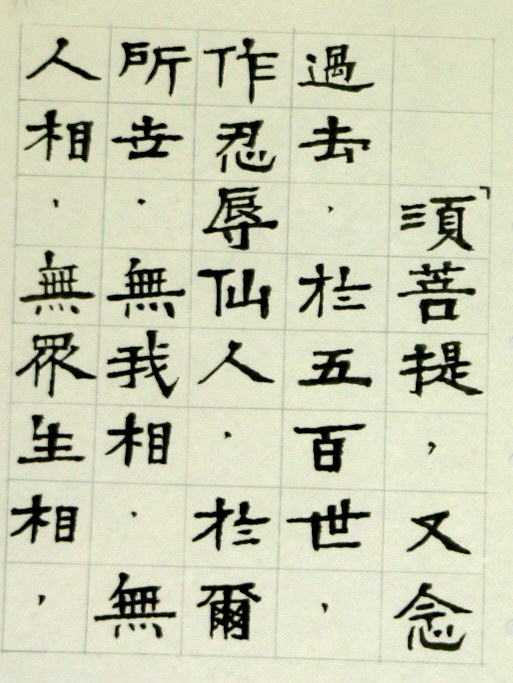 「須菩提，又念
過去，於五百世，
作忍辱仙人，於爾
所世，無我相，無
人相，無眾生相，